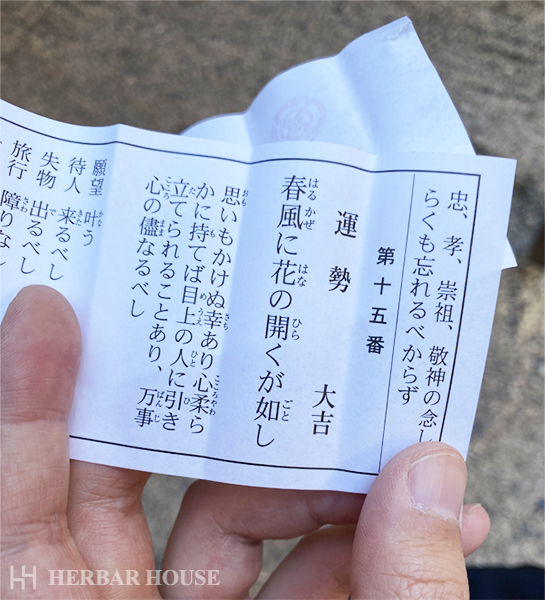 忠、孝、崇祖、敬神の念し
らくも忘れるべからず
第十五番
運勢 大吉
春風に花の開くが如し
思いもかけぬ幸あり心柔ら
かに持てば目上の人に引き
立てられることあり、万事
心の儘なるべし
願望 叶う
待人 来るべし
失物 出るべし
旅行 障りなし
HERBAR HOUSE